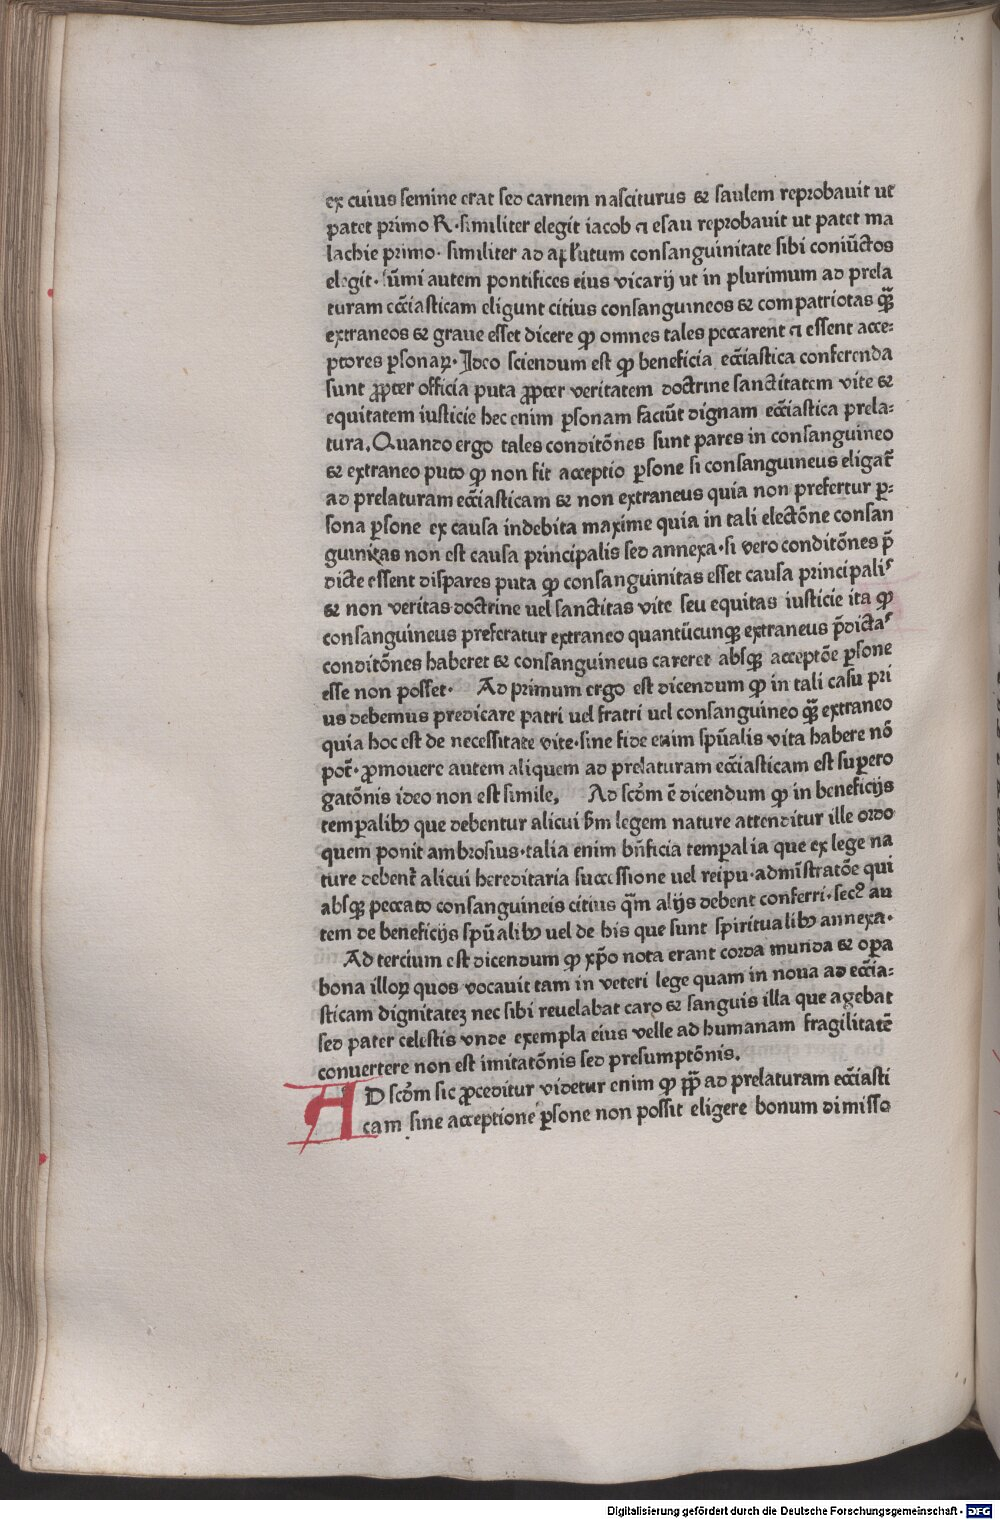 ex cuius semine erat sed carnem nasciturus ⁊ saulem reprobauit ut
patet primo R·similiter elegit iacob ⁊ esau reprobauit ut patet ma
lachie primo· similiter ad apl̓atum consanguinitate sibi coniūctos
elegit·sūmi autem pontifices eius vicarij ut in plurimum ad prela
turam ecc̄iasticam eligunt citius consanguineos ⁊ compatriotas qꝫ̄
extraneos ⁊ graue esset dicere ꝙ omnes tales peccarent ⁊ essent acce-
ptores ꝑsonaꝝ· Ideo sciendum est ꝙ beneficia ecc̄iastica conferenda
sunt ꝓpter officia puta ꝓpter veritatem doctrine sanctitatem vite ⁊
equitatem iusticie hec enim ꝑsonam faciūt dignam ecc̄iastica prela-
tura, Quando ergo tales conditōnes sunt pares in consanguineo
⁊ extraneo puto ꝙ non fit acceptio ꝑsone si consanguineus eligat̄
ad prelaturam ecc̄iasticam ⁊ non extraneus quia non prefertur ꝑ-
sona ꝑsone ex causa indebita maxime quia in tali electōne consan
guinitas non est causa principalis sed annexa·si vero conditōnes p̄
dicte essent dispares puta ꝙ consanguinitas esset causa principalis
⁊ non veritas doctrine uel sanctitas vite seu equitas iusticie ita ꝙ
consanguineus preferatur extraneo quantūcunqꝫ extraneus p̄dictas
conditōnes haberet ⁊ consanguineus careret absqꝫ acceptōe ꝑsone
esse non posset· Ad primum ergo est dicendum ꝙ in tali casu pri
us debemus predicare patri uel fratri uel consanguineo qꝫ̄ extraneo
quia hoc est de necessitate vite·sine fide enim spūalis vita habere nō
pot̄·ꝓmouere autem aliquem ad prelaturam ecc̄iasticam est suꝑero
gatōnis ideo non est simile, Ad scd̄m ē dicendum ꝙ in beneficijs
temꝑalibꝫ que debentur alicui ẜm legem nature attenditur ille ordo
quem ponit ambrosius·talia enim bn̄ficia temꝑalia que ex lege na
ture debent̄ alicui hereditaria successione uel reipu·admīstratōe qui
absqꝫ peccato consanguineis citius qm̄ alijs debent conferri·secꝰ au
tem de beneficijs spūalibꝫ uel de his que sunt spiritualibꝫ annexa·
Ad tercium est dicendum ꝙ xp̄o nota erant corda munda ⁊ oꝑa
bona illoꝝ quos vocauit tam in veteri lege quam in noua ad ecc̄ia-
sticam dignitateꝫ nec sibi reuelabat caro ⁊ sanguis illa que agebat
sed pater celestis vnde exempla eius velle ad humanam fragilitatē
conuertere non est imitatōnis sed presumptōnis.
AD scd̄m sic ꝓceditur videtur enim ꝙ pp̄ ad prelaturam ecc̄iasti
cam sine acceptione ꝑsone non possit eligere bonum dimisso
Digitalisierung gefördert durch die Deutsche Forschungsgemeinschaft - DFG